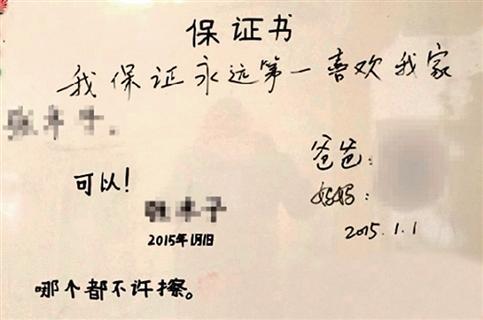 保证书
我保证永远第一喜欢我家
爸爸:
可以!
妈妈:
2015年1月1日
2015.1.1
哪个都不许擦。